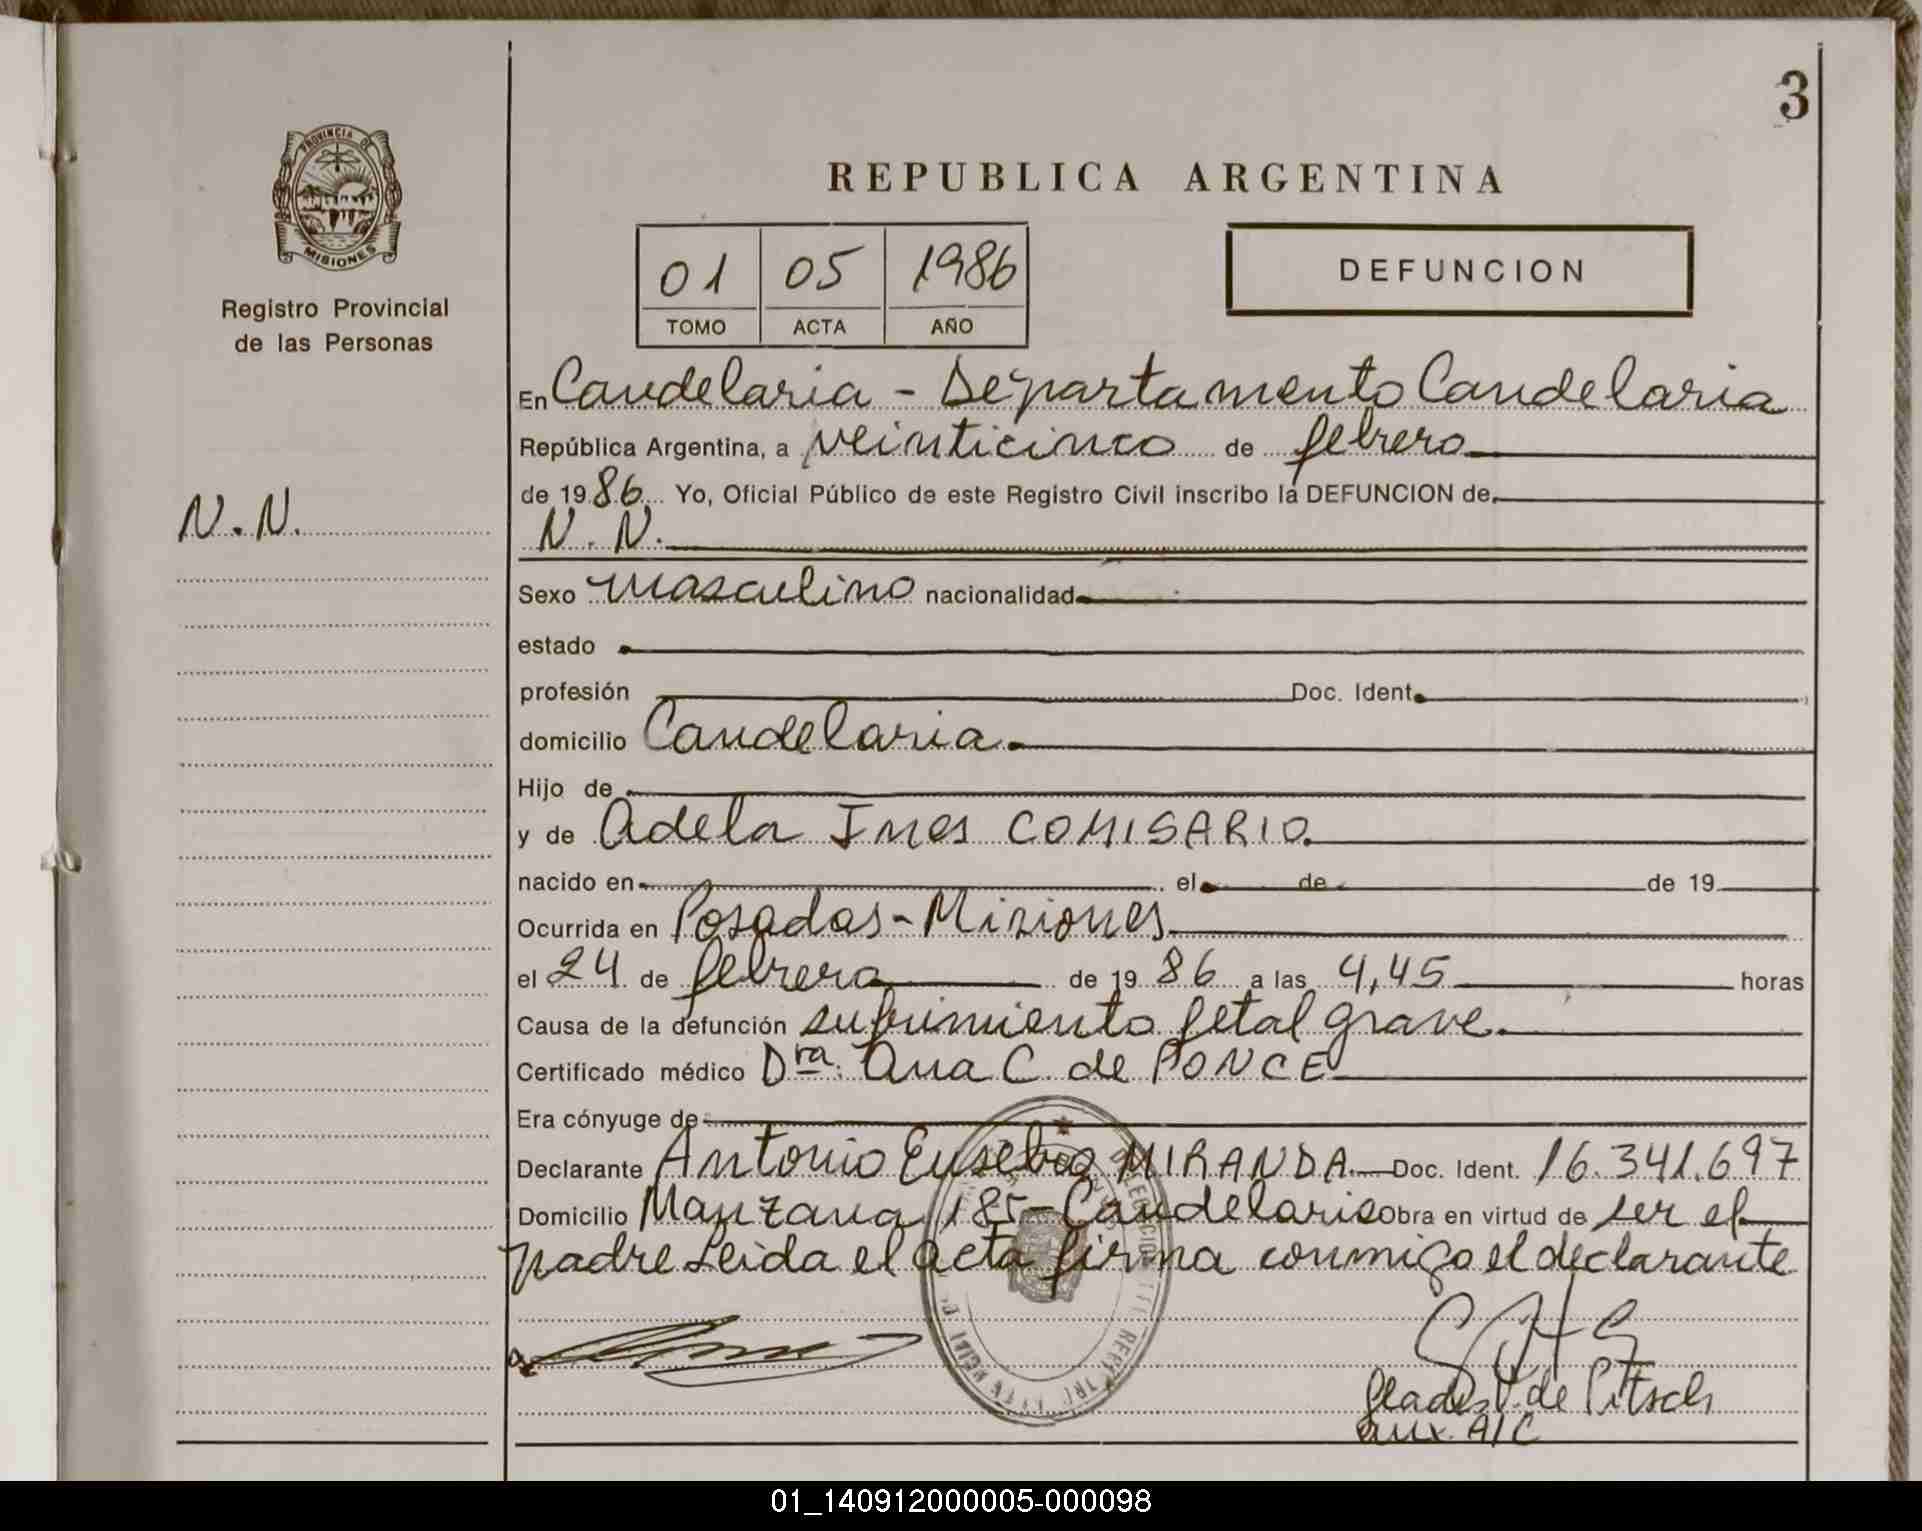 3
PROVINCIA DE
MISIONES
Registro Provincial
de las Personas
REPUBLICA ARGENTINA
01 05 1986
TOMO ACTA AÑO
DEFUNCION
En Candelaria - Departamento Candelaria
República Argentina, a veinticinco de febrero
de 1986 Yo, Oficial Público de este Registro Civil inscribo la DEFUNCION de
N.N.
N. N.
Sexo masculino nacionalidad
estado
profesión Doc. Ident.
domicilio Candelaria.
Hijo de
y de Adela Ines COMISARIO.
nacido en el de de 19
Ocurrida en Posadas - Misiones
el 24 de febrero de 1986 a las 4,45 horas
Causa de la defunción sufrimiento fetal grave.
Certificado médico Dra. Ana C. de PONCE
Era cónyuge de
Declarante Antonio Eusebio MIRANDA. Doc. Ident. 16.341.697
Domicilio Manzana 185 - Candelaria Obra en virtud de ser el
padre Leida el acta firma conmigo el declarante
Glades V. de Pitsch
aux. A/C
01_140912000005-000098